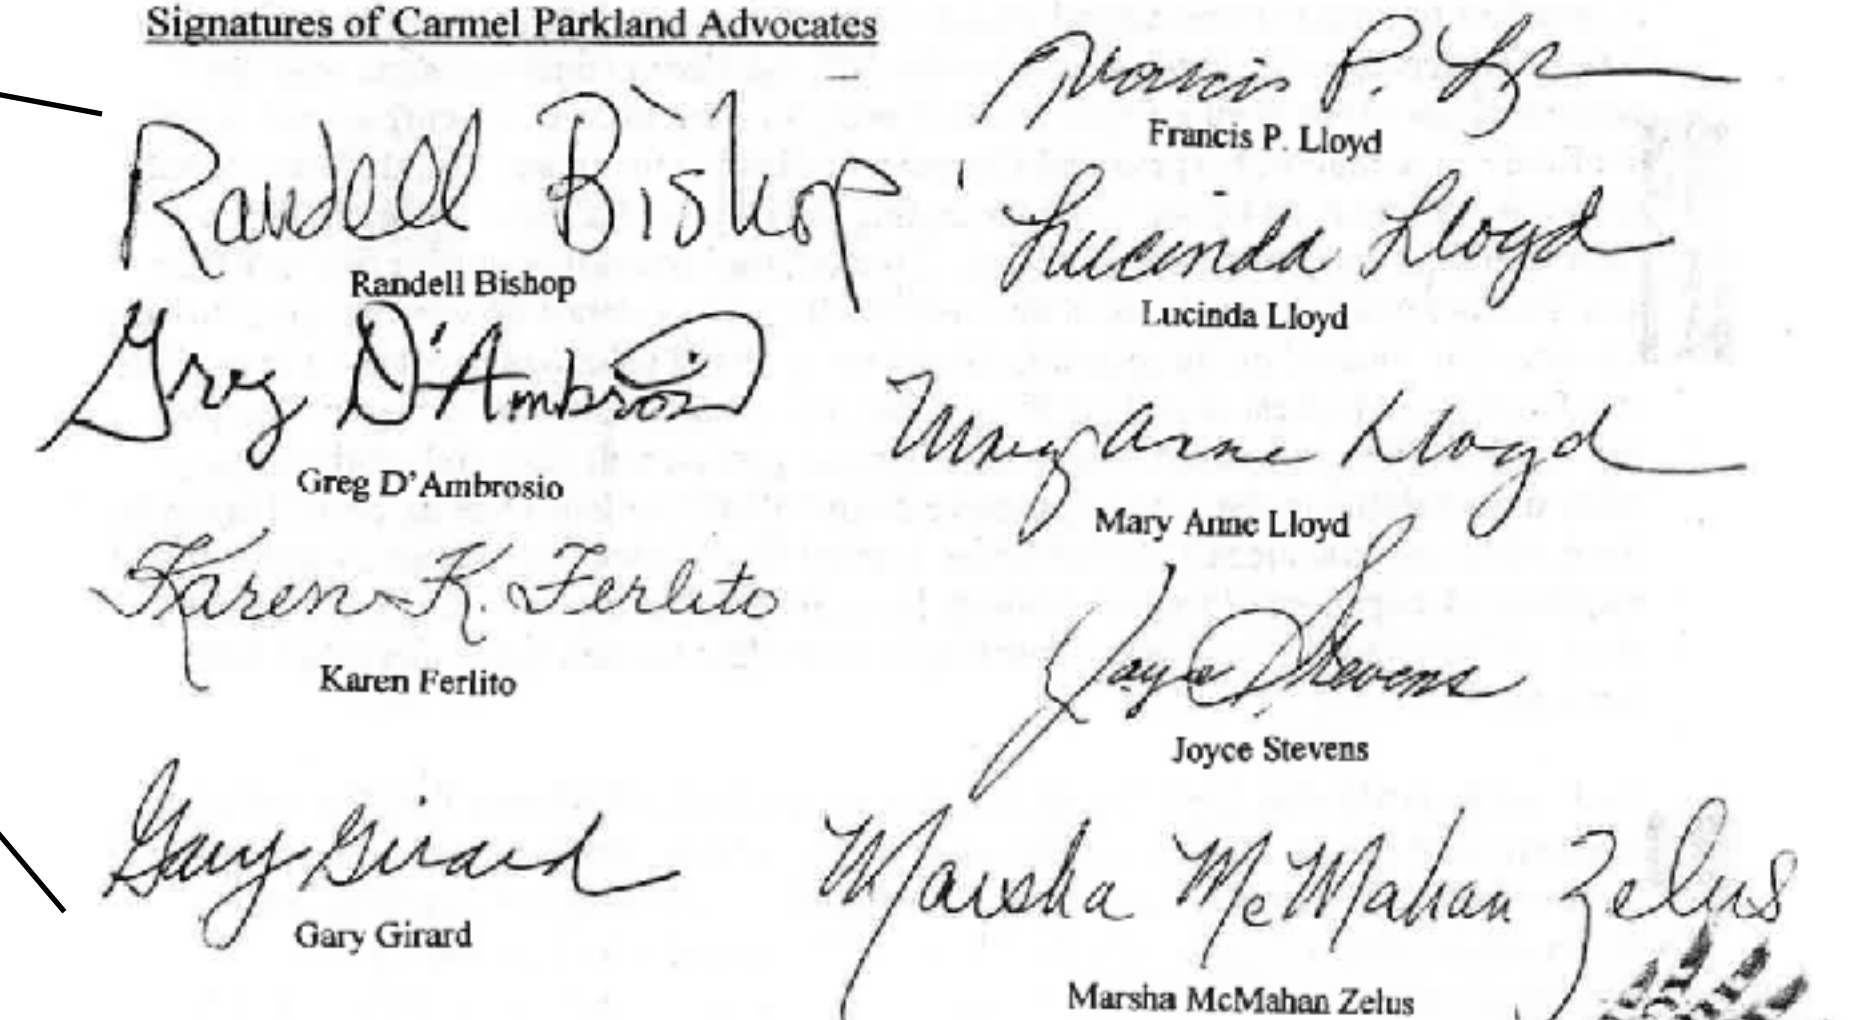 Signatures of Carmel Parkland Advocates
Randell Bishop
Randell Bishop
Greg D'Ambrosio
Greg D'Ambrosio
Karen K. Ferlito
Karen Ferlito
Gary Girard
Gary Girard
Francis P.
Francis P. Lloyd
Lucinda Lloyd
Lucinda Lloyd
Mary Anne Lloyd
Mary Anne Lloyd
Joyce Stevens
Joyce Stevens
Marsha McMahan Zelus
Marsha McMahan Zelus